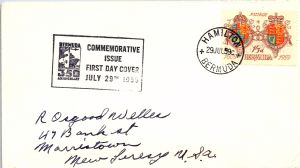 BERMUDA
350
ANNIVERSARY
COMMEMORATIVE
ISSUE
FIRST DAY COVER
JULY 29TH 1959
HAMILTON
29 JUL 59
BERMUDA
POSTAGE
BERMUDA
1959
R Osgood Welles
47 Bank St
Morristown
New Jersey U.S.a.